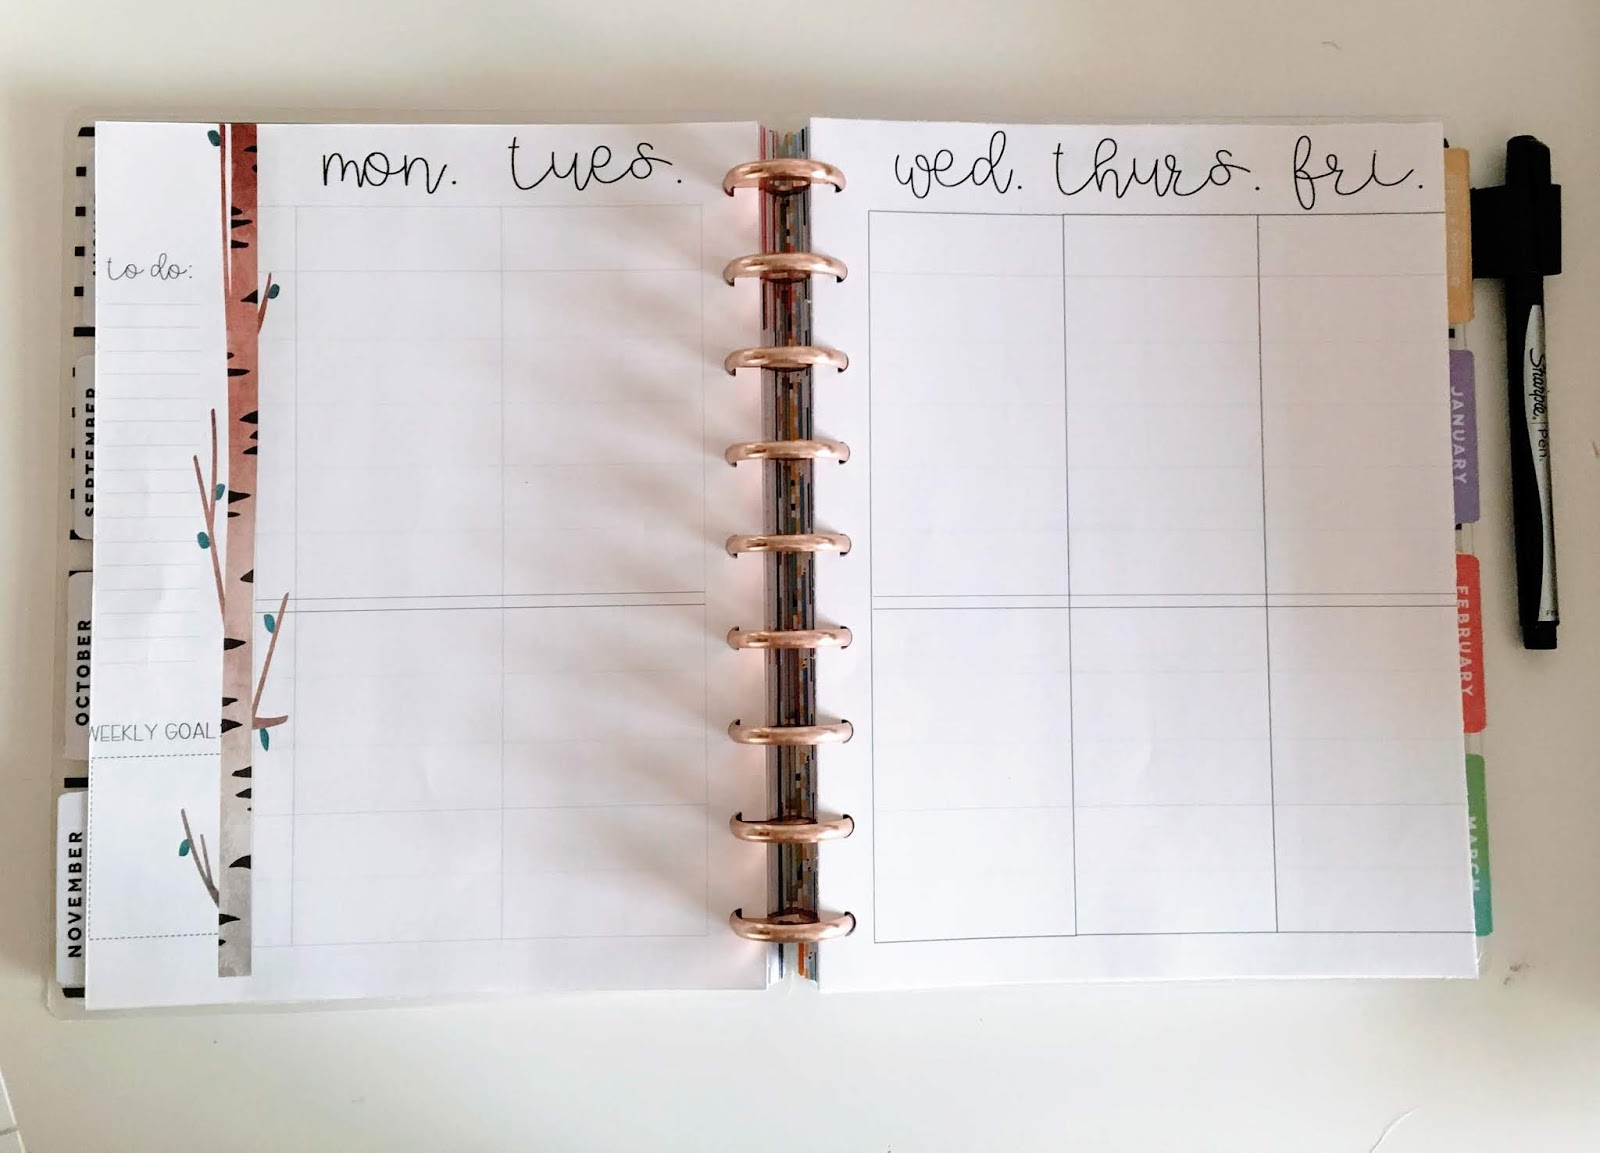 mon. tues.
wed. thurs. fri.
to do:
WEEKLY GOAL
SEPTEMBER
OCTOBER
NOVEMBER
JANUARY
FEBRUARY
MARCH
Sharpie. Pen.